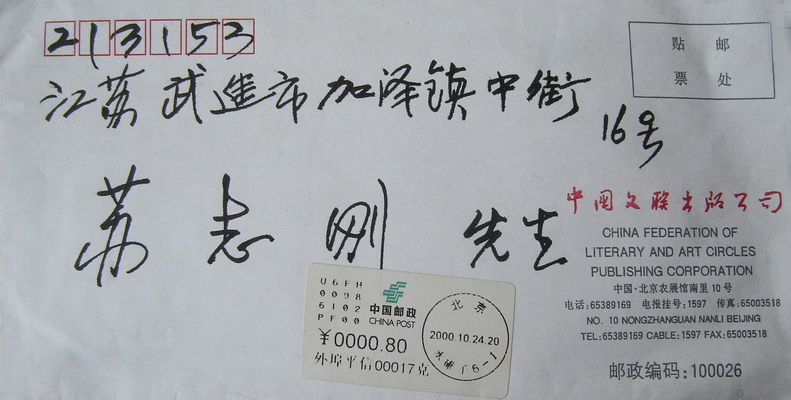 213153
贴 邮
票 处
江苏武进市加泽镇中街
16号
苏志刚 先生
中国文联出版公司
CHINA FEDERATION OF
LITERARY AND ART CIRCLES
PUBLISHING CORPORATION
中国·北京农展馆南里10号
电话:65389169 电报挂号:1597 传真:65003518
NO. 10 NONGZHANGUAN NANLI BEIJING
TEL:65389169 CABLE:1597 FAX:65003518
邮政编码:100026
U6FH
0098
6102
PF00
中国邮政
CHINA POST
¥0000.80
外埠平信00017克
北京
2000.10.24.20
6-1